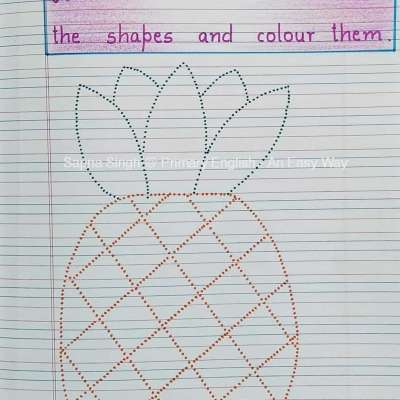 the shapes and colour them.
Sapna Singh @ Primary English - An Easy Way